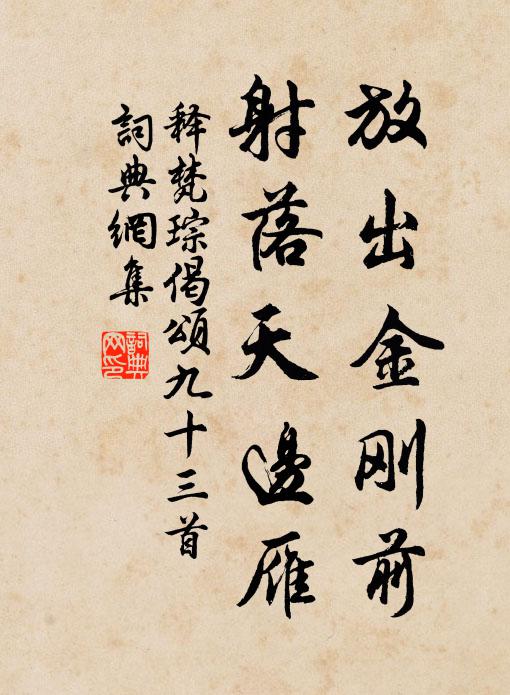 放出金刚前
射落天邊雁
释梵琮偈頌九十三首
詞典網集
詞典網印